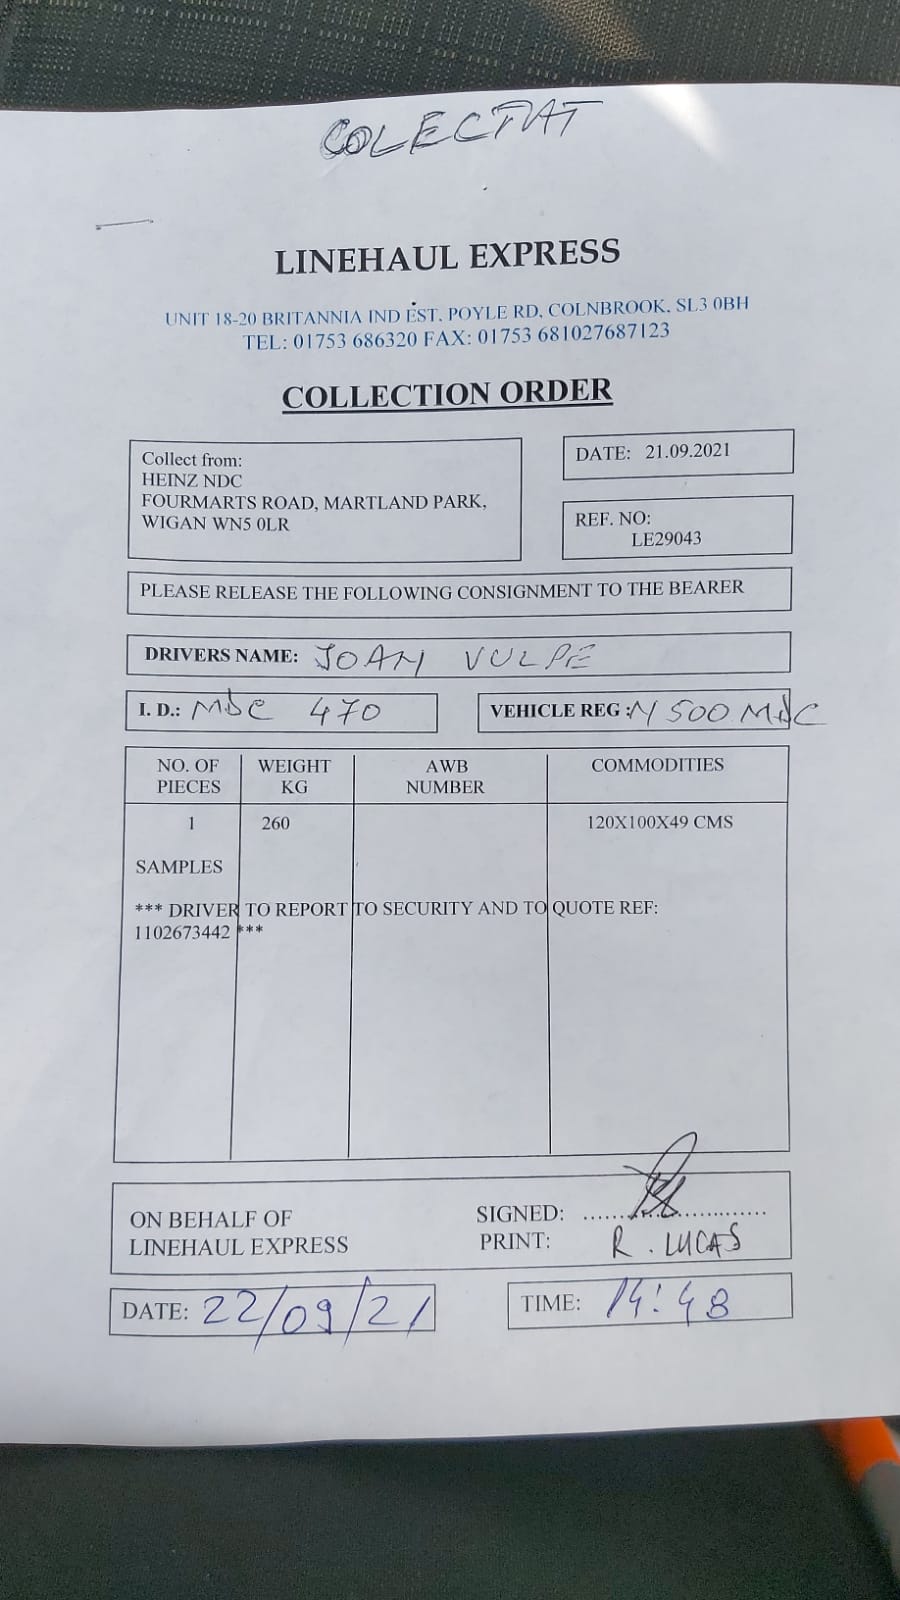 COLECTAT
LINEHAUL EXPRESS
UNIT 18-20 BRITANNIA IND EST. POYLE RD, COLNBROOK. SL3 0BH
TEL: 01753 686320 FAX: 01753 681027687123
COLLECTION ORDER
Collect from:
HEINZ NDC
FOURMARTS ROAD, MARTLAND PARK,
WIGAN WN5 0LR
DATE: 21.09.2021
REF. NO:
LE29043
PLEASE RELEASE THE FOLLOWING CONSIGNMENT TO THE BEARER
DRIVERS NAME: IOAN VULPE
I. D.: MDC 470
VEHICLE REG : N 500 MDC
NO. OF PIECES WEIGHT KG AWB NUMBER COMMODITIES
1 260 120X100X49 CMS
SAMPLES
*** DRIVER TO REPORT TO SECURITY AND TO QUOTE REF:
1102673442 ***
ON BEHALF OF
LINEHAUL EXPRESS
SIGNED:
PRINT: R. LUCAS
DATE: 22/09/21
TIME: 14:48